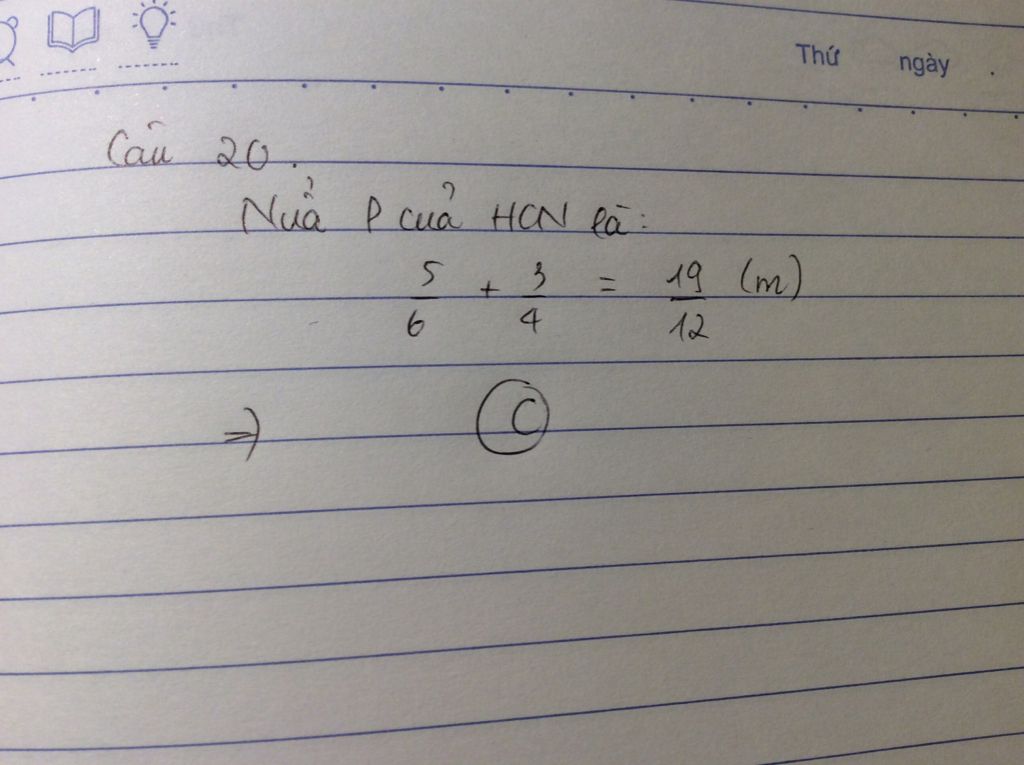 Thứ ngày .
Câu 20.
Nửa P của HCN là:
5/6 + 3/4 = 19/12 (m)
=> C